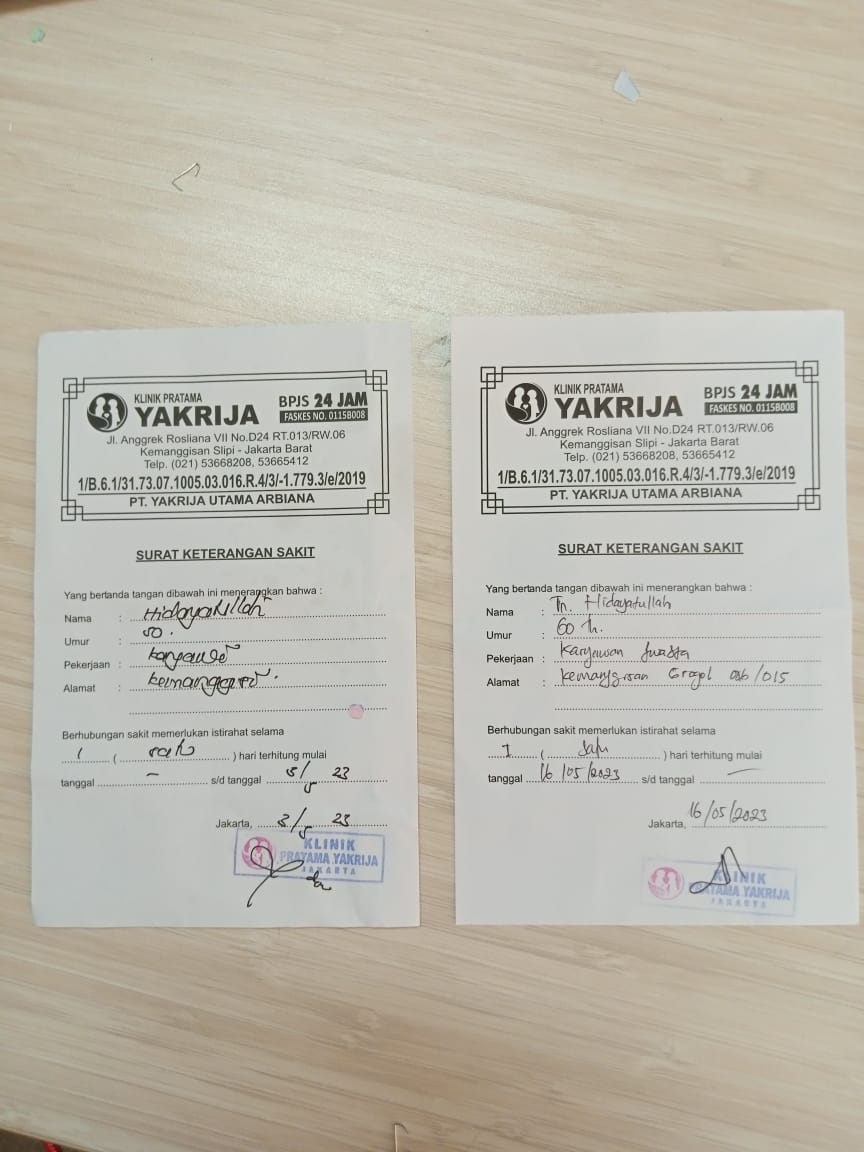 KLINIK PRATAMA
YAKRIJA
BPJS 24 JAM
FASKES NO. 0115B008
Jl. Anggrek Rosliana VII No.D24 RT.013/RW.06
Kemanggisan Slipi - Jakarta Barat
Telp. (021) 53668208, 53665412
1/B.6.1/31.73.07.1005.03.016.R.4/3/-1.779.3/e/2019
PT. YAKRIJA UTAMA ARBIANA
SURAT KETERANGAN SAKIT
Yang bertanda tangan dibawah ini menerangkan bahwa :
Nama : Hidayatullah
Umur : 50.
Pekerjaan :
Alamat :
Berhubungan sakit memerlukan istirahat selama
1 ( ) hari terhitung mulai
tanggal - s/d tanggal 23
Jakarta, 23
KLINIK
PRATAMA YAKRIJA
JAKARTA
KLINIK PRATAMA
YAKRIJA
BPJS 24 JAM
FASKES NO. 0115B008
Jl. Anggrek Rosliana VII No.D24 RT.013/RW.06
Kemanggisan Slipi - Jakarta Barat
Telp. (021) 53668208, 53665412
1/B.6.1/31.73.07.1005.03.016.R.4/3/-1.779.3/e/2019
PT. YAKRIJA UTAMA ARBIANA
SURAT KETERANGAN SAKIT
Yang bertanda tangan dibawah ini menerangkan bahwa :
Nama : Tn. Hidayatullah
Umur : 60 th.
Pekerjaan : Karyawan swasta
Alamat : Kemanggisan Grogol /015
Berhubungan sakit memerlukan istirahat selama
1 ( Satu ) hari terhitung mulai
tanggal 16/05/2023 s/d tanggal -
Jakarta, 16/05/2023
KLINIK
PRATAMA YAKRIJA
JAKARTA